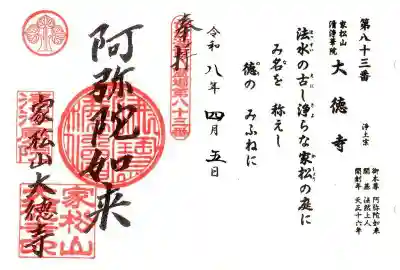 第八十三番
家松山
清浄華院
大徳寺
浄土宗
御本尊 阿弥陀如来
開基 法然上人
開創年 天正十六年
法水の古し浄らな家松の庭に
み名を 称えし
徳の みふねに
令和八年 四月 五日
奉拝
第八十三番
阿弥陀如来
家松山大徳寺
家松山